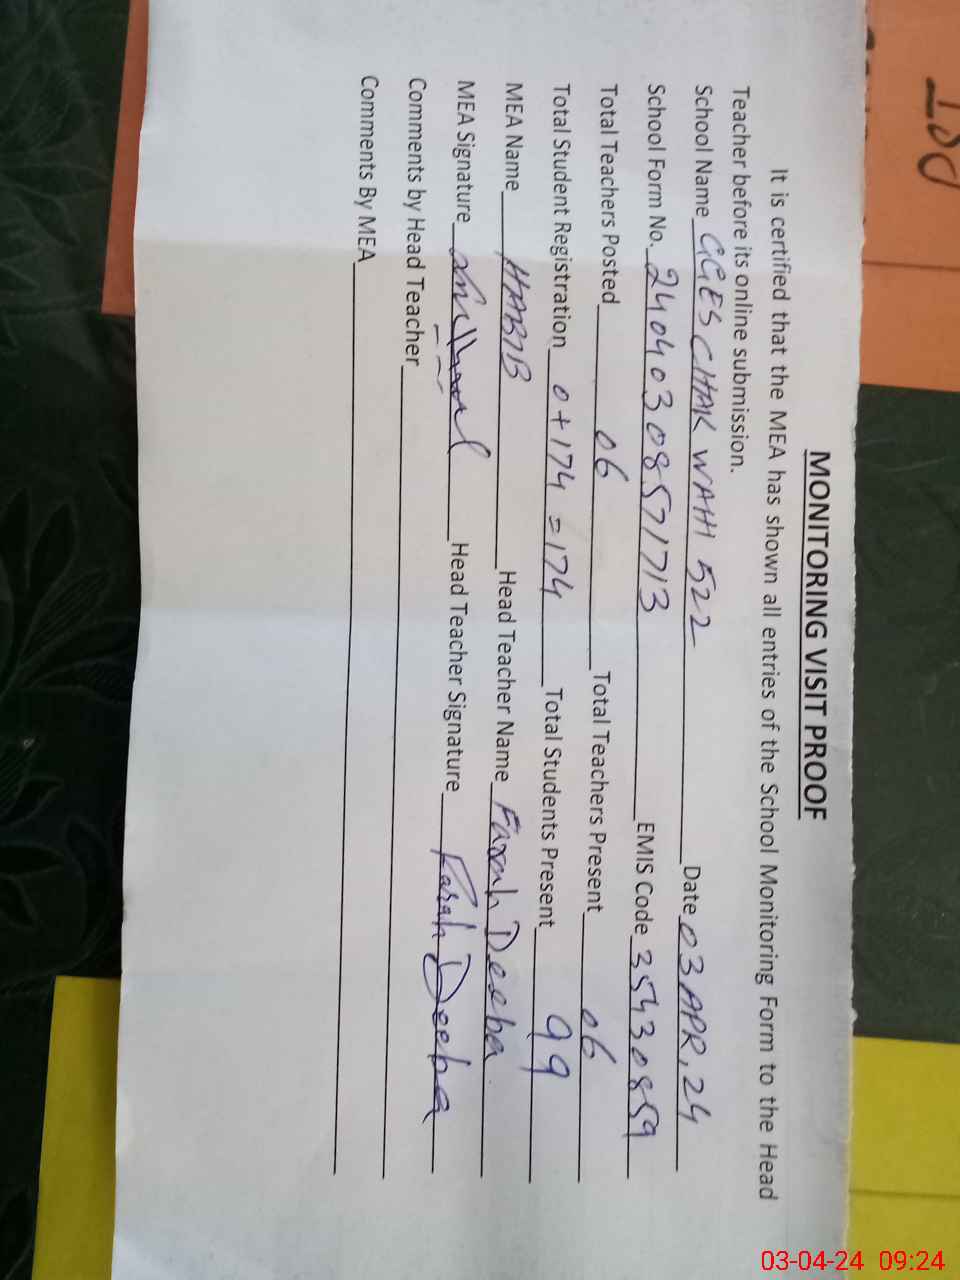 MONITORING VISIT PROOF
It is certified that the MEA has shown all entries of the School Monitoring Form to the Head
Teacher before its online submission.
School Name GGES CHAK WAHI 522 Date 03 APR, 24
School Form No. 24040308571713 EMIS Code 35430859
Total Teachers Posted 06 Total Teachers Present 06
Total Student Registration 0+174 = 174 Total Students Present 99
MEA Name HABIB Head Teacher Name Farah Deeba
MEA Signature Head Teacher Signature Farah Deeba
Comments by Head Teacher
Comments By MEA
03-04-24 09:24